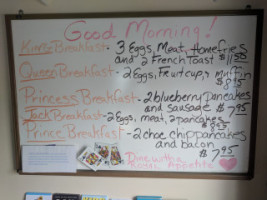 Good Morning!
King Breakfast - 3 Eggs, Meat, Homefries
and 2 French Toast
Queen Breakfast - 2 Eggs, fruit cup, Muffin
Princess Breakfast - 2 blueberry pancakes
and sausage $7.95
Jack Breakfast - 2 Eggs, meat, 2 pancakes
Prince Breakfast - 2 choc chip pancakes
and bacon
$7.95
Dine with a
Royal Appetite